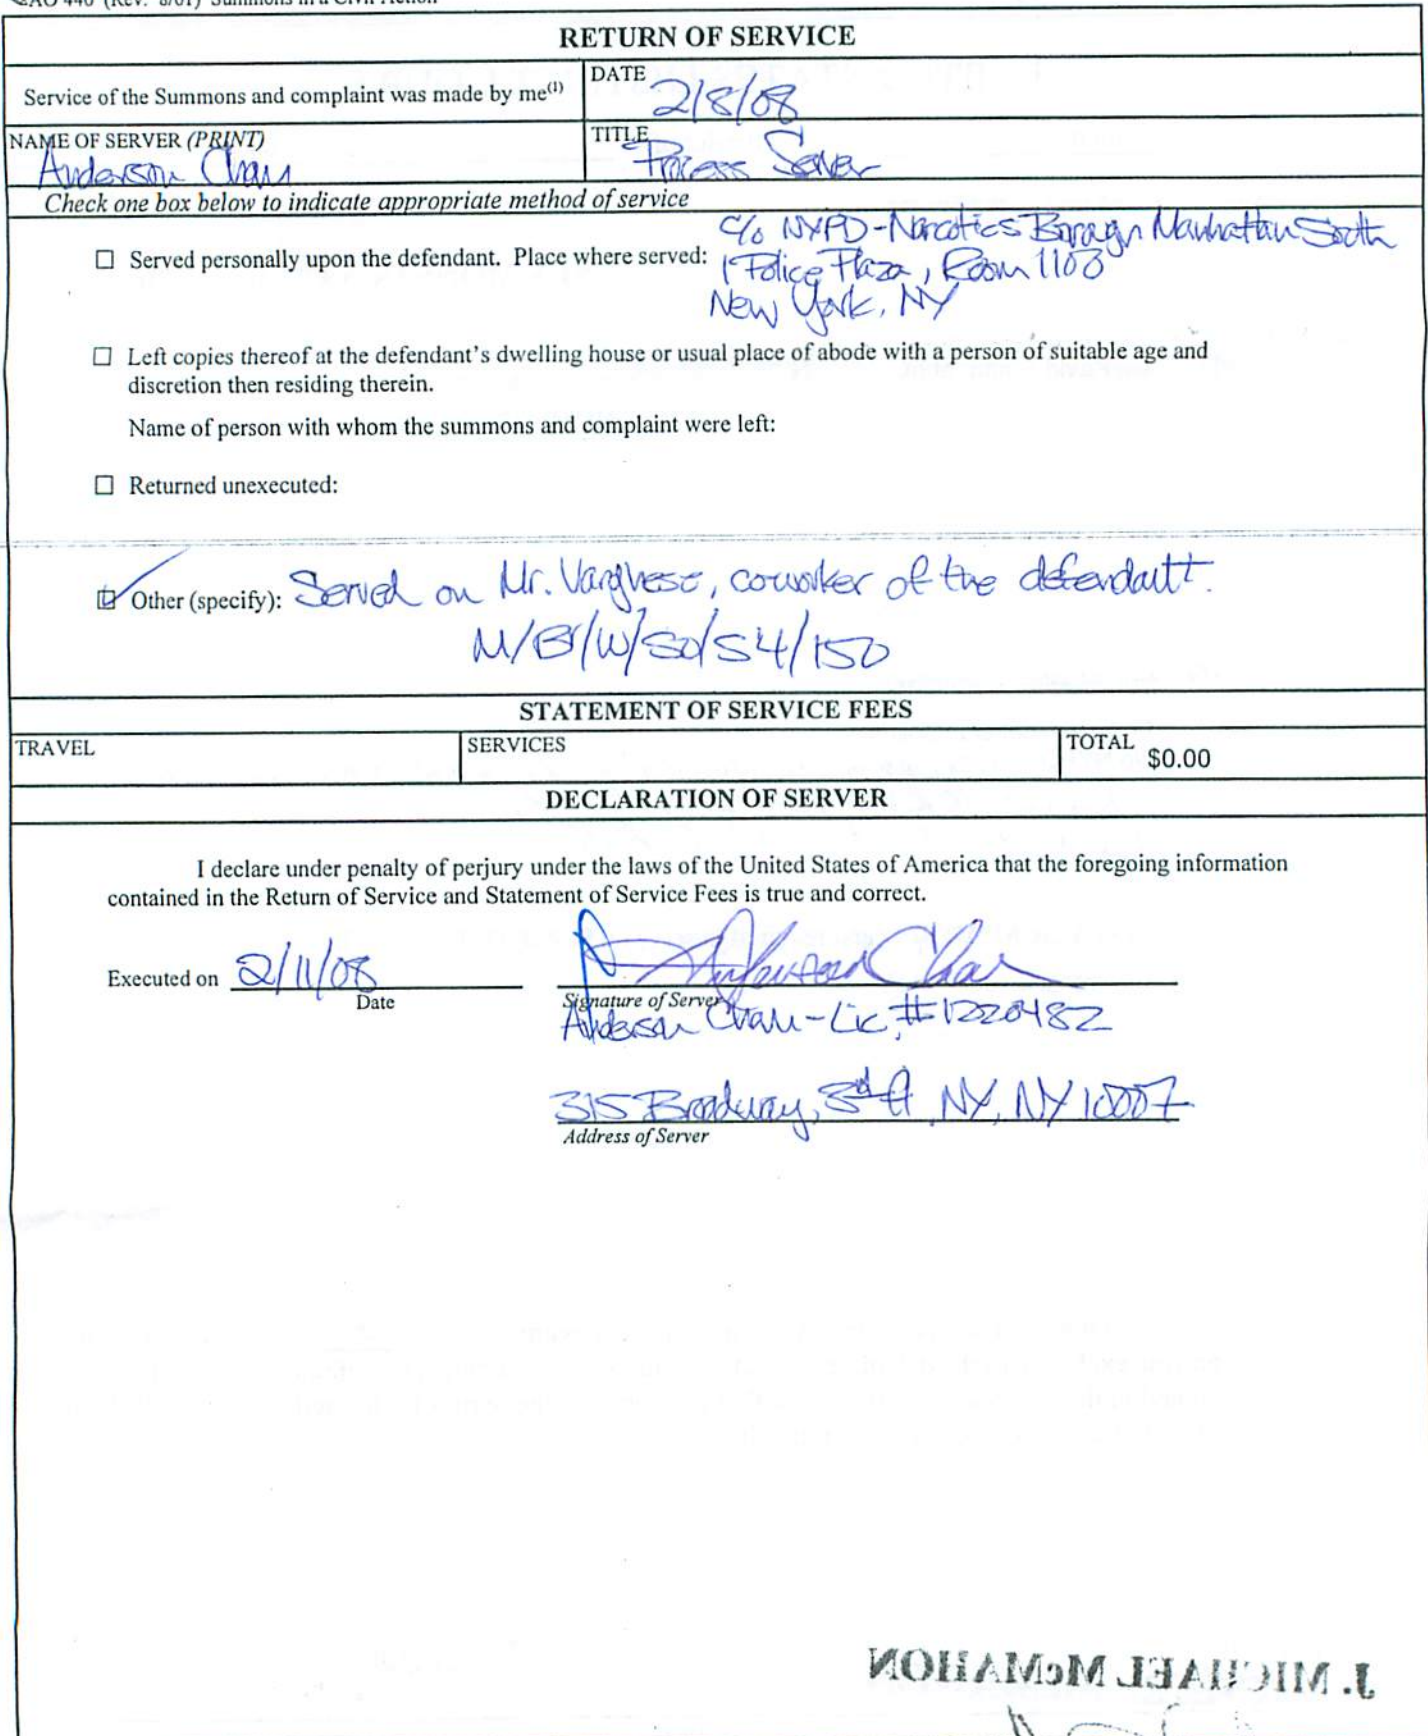 AO 440 (Rev. 8/01) Summons in a Civil Action
RETURN OF SERVICE
Service of the Summons and complaint was made by me(1)
DATE
2/8/08
NAME OF SERVER (PRINT)
Anderson Chan
TITLE
Process Server
Check one box below to indicate appropriate method of service
☐ Served personally upon the defendant. Place where served:
c/o NYPD-Narcotics Borough Manhattan South
1 Police Plaza, Room 1100
New York, NY
☐ Left copies thereof at the defendant's dwelling house or usual place of abode with a person of suitable age and
discretion then residing therein.
Name of person with whom the summons and complaint were left:
☐ Returned unexecuted:
☑ Other (specify): Served on Mr. Varghese, coworker of the defendant.
M/Br/W/50/54/150
STATEMENT OF SERVICE FEES
TRAVEL
SERVICES
TOTAL
$0.00
DECLARATION OF SERVER
I declare under penalty of perjury under the laws of the United States of America that the foregoing information
contained in the Return of Service and Statement of Service Fees is true and correct.
Executed on 2/11/08
Date
Anderson Chan
Signature of Server
Anderson Chan - Lic. #1220482
315 Broadway, 3rd fl, NY, NY 10007
Address of Server
J. MICHAEL McMAHON